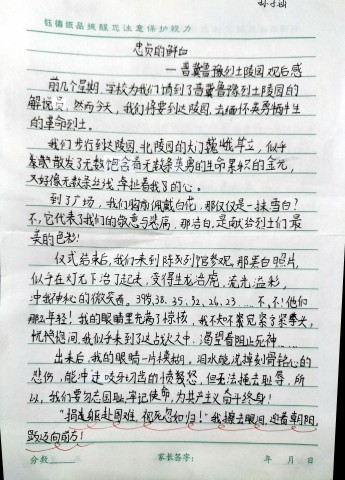 钰倩纸品提醒您注意保护视力
忠贞的鲜血
——晋冀鲁豫烈士陵园观后感
前几个星期,学校为我们请到了晋冀鲁豫烈士陵园的
解说员,然而今天,我们将要到达陵园,去缅怀英勇牺牲
的革命烈士。
我们步行到达陵园,北陵园的大门巍峨耸立,似乎
散发了无数饱含着无数英勇的生命累积的金光,
又好像无数条丝线,牵扯着我们的心。
到了广场,我们胸前佩戴白花,那仅仅是一抹雪白?
不,它代表了我们的敬意与悲痛,那洁白,是献给烈士们最
美的色彩!
仪式结束后,我们来到陈列馆参观,那黑白照片,
似乎在灯光下活了起来,变得生龙活虎,流光溢彩,
冲我神秘的微笑着,39岁,38,35,32,26,23……不,不!他们
那么年轻!我的眼睛里充满了惊骇,我不知不觉见紧了紧拳头,
恍惚间,我似乎来到了这战火之中,渴望着阻止死神……
出来后,我的眼前一片模糊,泪水能洗掉刻骨铭心的
悲伤,能冲走咬牙切齿的愤怒,但无法抹去耻辱,所
以,我们要勿忘国耻,牢记使命,为共产主义奋斗终身!
"捐躯赴国难,视死忽如归!"我擦去眼泪,迎着朝阳,
迈向前方!
分数 家长签字: 年 月 日